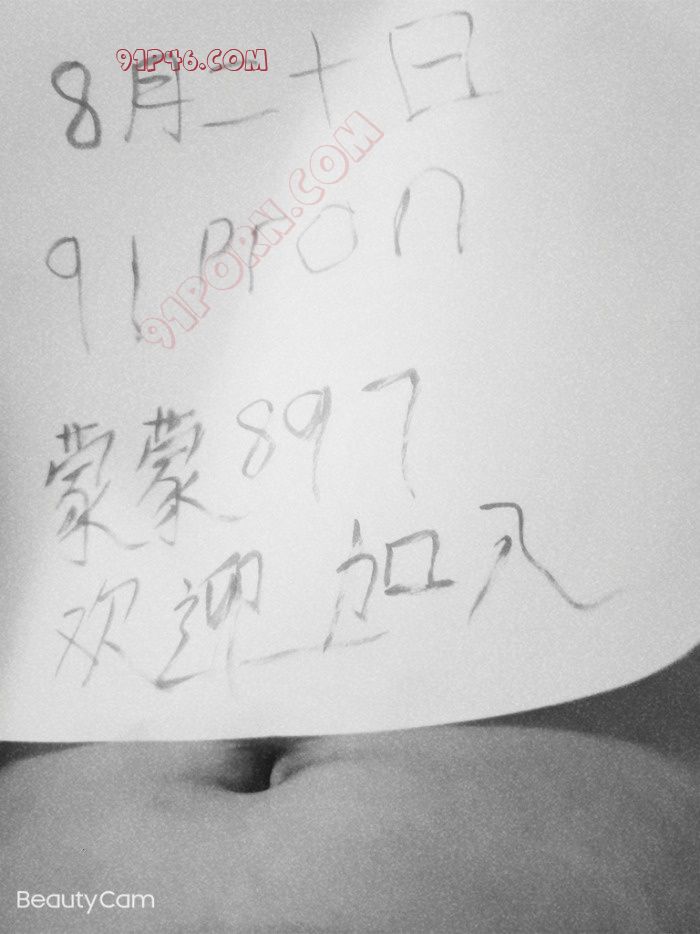 91P46.COM
8月二十日
91PORN.COM
91 BPOn
蒙蒙897
欢迎加入
BeautyCam